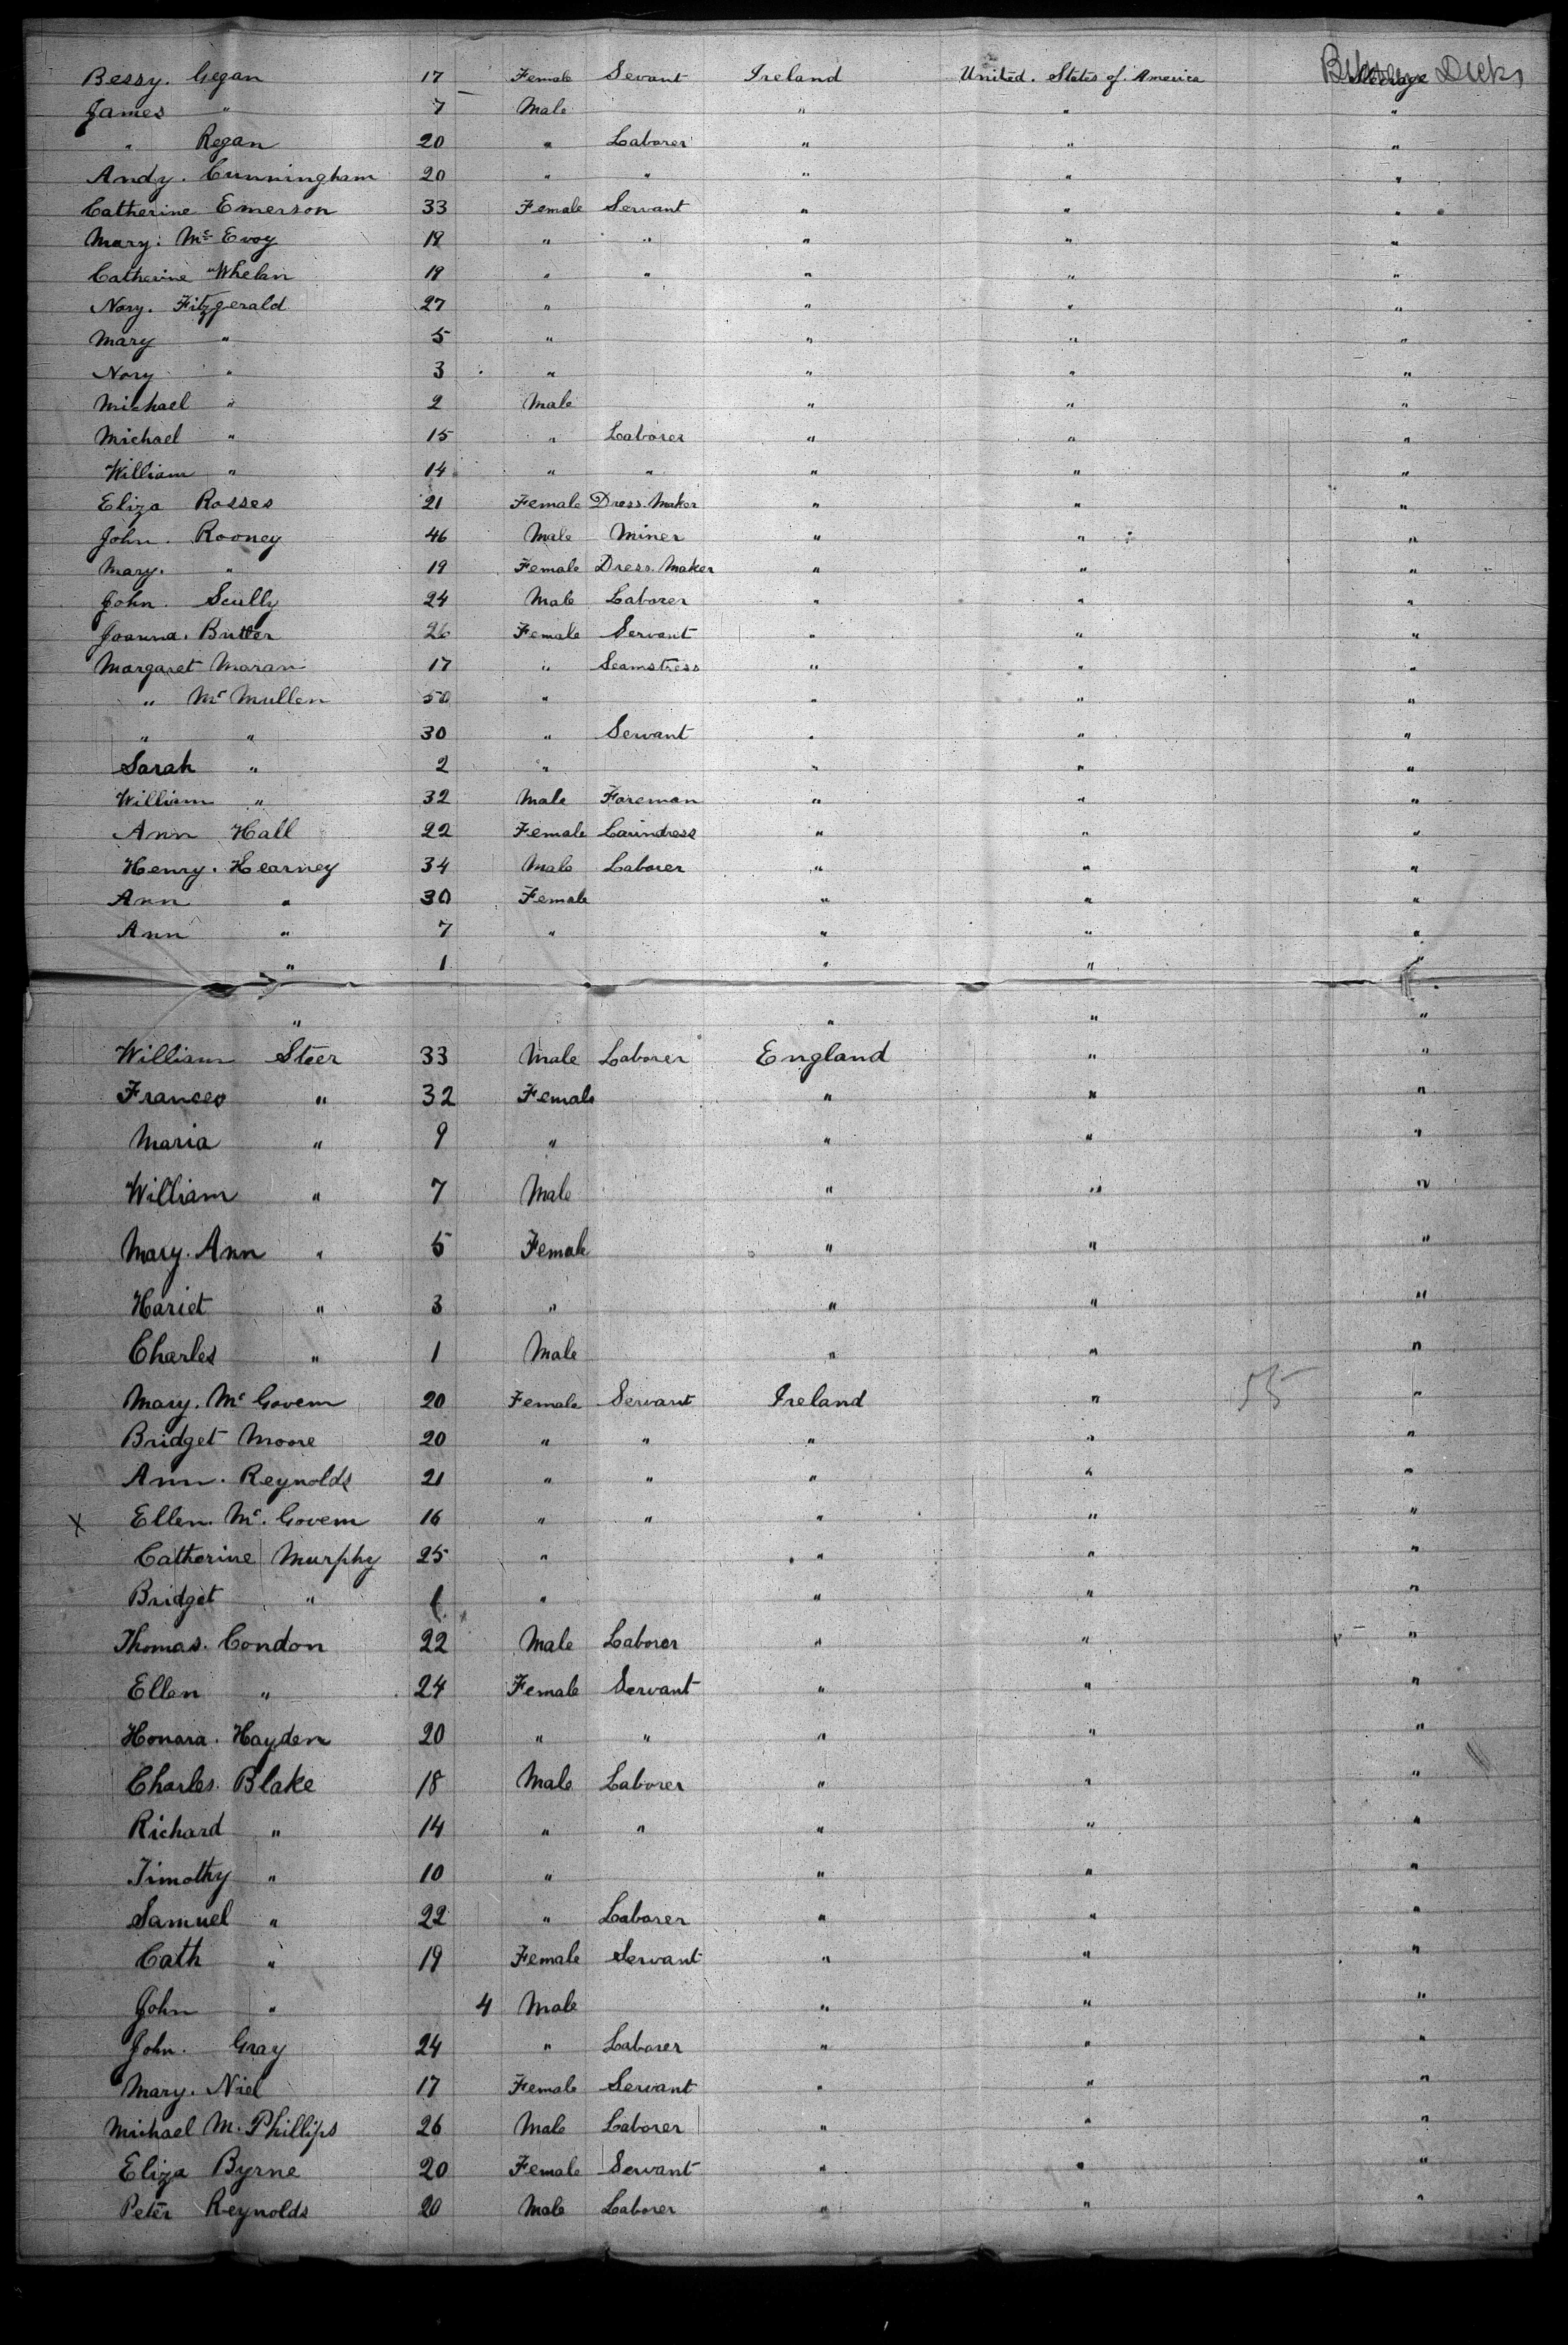 Bessy. Gegan 17 Female Sevant Ireland United. States of. America Steerage Between Decks
James " 7 Male " " "
" Regan 20 " Laborer " " "
Andy. Cunningham 20 " " " " "
Catherine Emerson 33 Female Servant " " "
Mary. Mc Evoy 18 " " " " "
Catherine Whelan 19 " " " " "
Nory. Fitzgerald 27 " " " "
Mary " 5 " " " "
Nory " 3 " " " "
Michael " 2 Male " " "
Michael " 15 " Laborer " " "
William " 14 " " " " "
Eliza Rosses 21 Female Dress. Maker " " "
John. Rooney 46 Male Miner " " "
Mary. " 19 Female Dress. Maker " " "
John. Scully 24 Male Laborer " " "
Joanna. Butler 26 Female Servant " " "
Margaret Moran 17 " Seamstress " " "
" Mc Mullen 50 " " " "
" " 30 " Servant " " "
Sarah " 2 " " " "
William " 32 Male Foreman " " "
Ann Hall 22 Female Laundress " " "
Henry. Kearney 34 Male Laborer " " "
Ann " 30 Female " " "
Ann " 7 " " " "
" 1 " " "
" " " "
William Steer 33 Male Laborer England " "
Frances " 32 Female " " "
Maria " 9 " " " "
William " 7 Male " " "
Mary. Ann " 5 Female " " "
Hariet " 3 " " " "
Charles " 1 Male " " "
Mary. Mc Govern 20 Female Servant Ireland " 55 "
Bridget Moore 20 " " " " "
Ann. Reynolds 21 " " " " "
X Ellen. Mc. Govern 16 " " " " "
Catherine Murphy 25 " " " "
Bridget " 1 " " " "
Thomas. Condon 22 Male Laborer " " "
Ellen " 24 Female Servant " " "
Honara. Hayden 20 " " " " "
Charles. Blake 18 Male Laborer " " "
Richard " 14 " " " " "
Timothy " 10 " " " "
Samuel " 22 " Laborer " " "
Cath " 19 Female Servant " " "
John " 4 Male " " "
John. Gray 24 " Laborer " " "
Mary. Niel 17 Female Servant " " "
Michael M. Phillips 26 Male Laborer " " "
Eliza Byrne 20 Female Servant " " "
Peter Reynolds 20 Male Laborer " " "